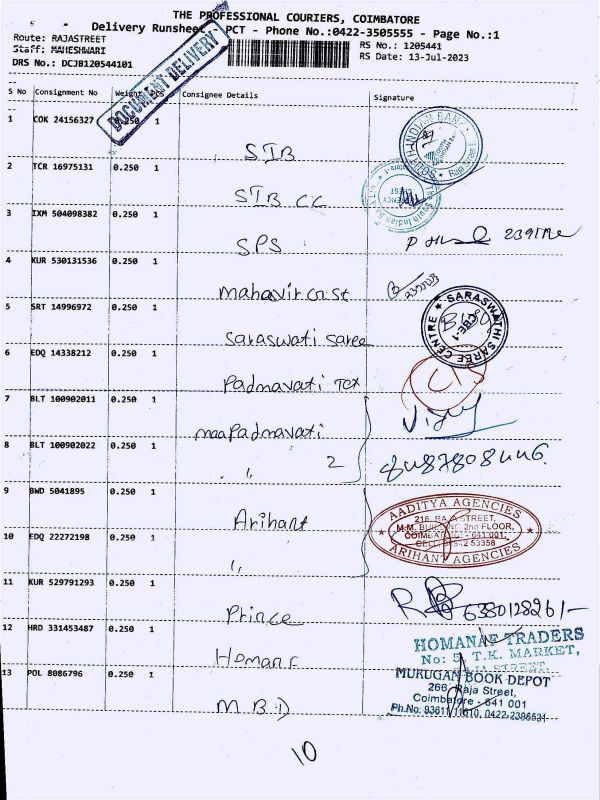 THE PROFESSIONAL COURIERS, COIMBATORE
Delivery Runsheet - PCT - Phone No.:0422-3505555 - Page No.:1
Route: RAJASTREET
RS No.: 1205441
Staff: MAHESHWARI
RS Date: 13-Jul-2023
DRS No.: DCJB120544101
DOCUMENT DELIVERY
S No Consignment No Weight Pcs Consignee Details Signature
1 COK 24156327 0.250 1 STB
2 TCR 16975131 0.250 1 STB CC
3 IXM 504098382 0.250 1 SPS
4 KUR 530131536 0.250 1 mahavir cost
5 SRT 14996972 0.250 1 Saraswati Saree
SARASWATHI SAREE CENTRE
CBE-1
6 EDQ 14338212 0.250 1 Padmavati Tex
7 BLT 100902011 0.250 1 maapadmavati
8 BLT 100902022 0.250 1 " 2
9 BWD 5041895 0.250 1 Arihant
AADITYA AGENCIES
216, RAJA STREET,
2nd FLOOR,
COIMBATORE - 641 001.
ARIHANT AGENCIES
10 EDQ 22272198 0.250 1 "
11 KUR 529791293 0.250 1 Prince
12 HRD 331453487 0.250 1
TRADERS
No: 5, T.K. MARKET,
RAJA STREET,
13 POL 8086796 0.250 1 M.B.D
MURUGAN BOOK DEPOT
266, Raja Street,
Coimbatore - 641 001
10